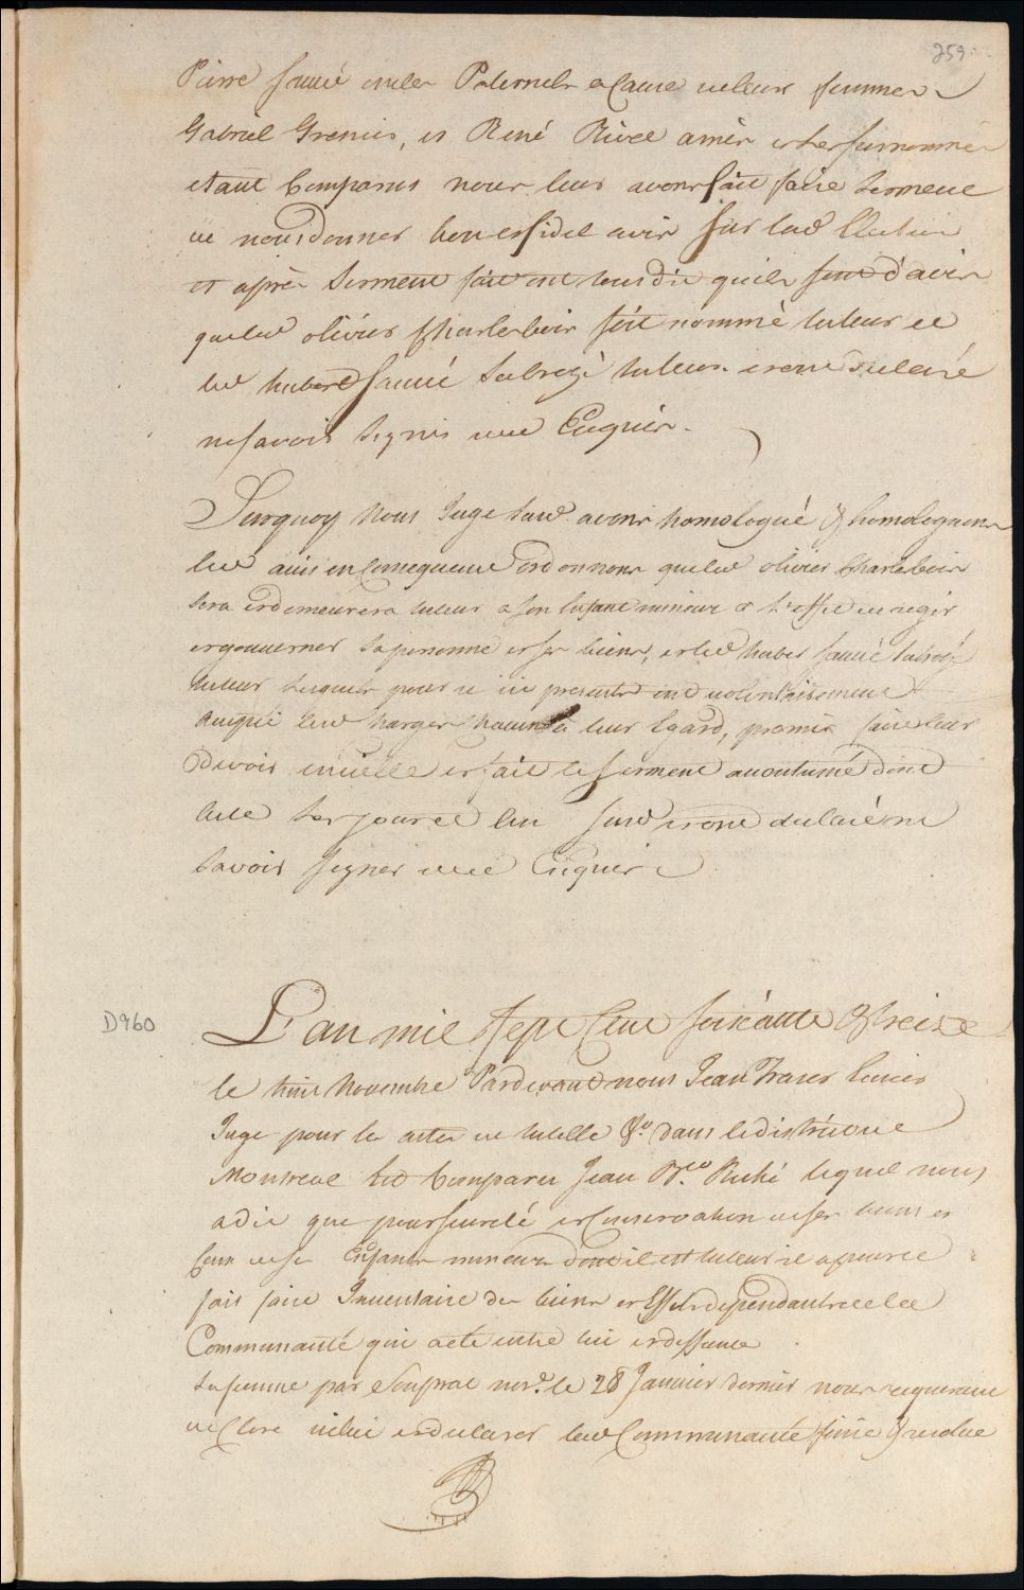 259
Pierre Sauvé oncles Paternels a Cause de leurs femmes
Gabriel Grenier, et René Rivee amis et les susnommés
etant Comparus nous leurs avons fait faire serment
de nous donner bon et fidel avis sur lad Election
et après serment fait ont tous dit quils sont d'avis
queled olivier Charlebois soit nommé tuteur et
led hubert Sauvé subrogé tuteur. et ont declaré
ne savoir signer de ce Enquis.
Surquoy Nous Juge susd avons homologué & homologuons
led avis en Consequence ordonnons queled olivier Charlebois
sera et demeurera tuteur a son Enfant mineur a l'effet de regir
et gouverner sa personne et ses biens, et led huber Sauvé subrogé
tuteur lesquels pour ce ici presents ont volontairement
Accepté lesd Charges Chacun a leur Egard, promis faire leur
Devoir en icelle et fait le serment accoutumé dont
Acte les jour et an susd et ont declaré ne
Savoir signer de ce Enquis
D960
L'an mil Sept Cent Soixante & treize
le trois Novembre Pardevant nous Jean Fraser Ecuier
Juge pour les actes de tutelle &c. dans le district de
Montreal Est Comparu Jean Bte. Riché lequel nous
a dit que pour sureté et Conservation de ses biens et
Ceux de ses Enfants mineurs dont il est tuteur il a
fait faire Inventaire des biens et Effets dependants de la
Communauté qui a eté entre lui et deffunte
sa femme par Soupras nore. le 28 Janvier dernier nous requerant
de Clore icelui et declarer lad Communauté finie &